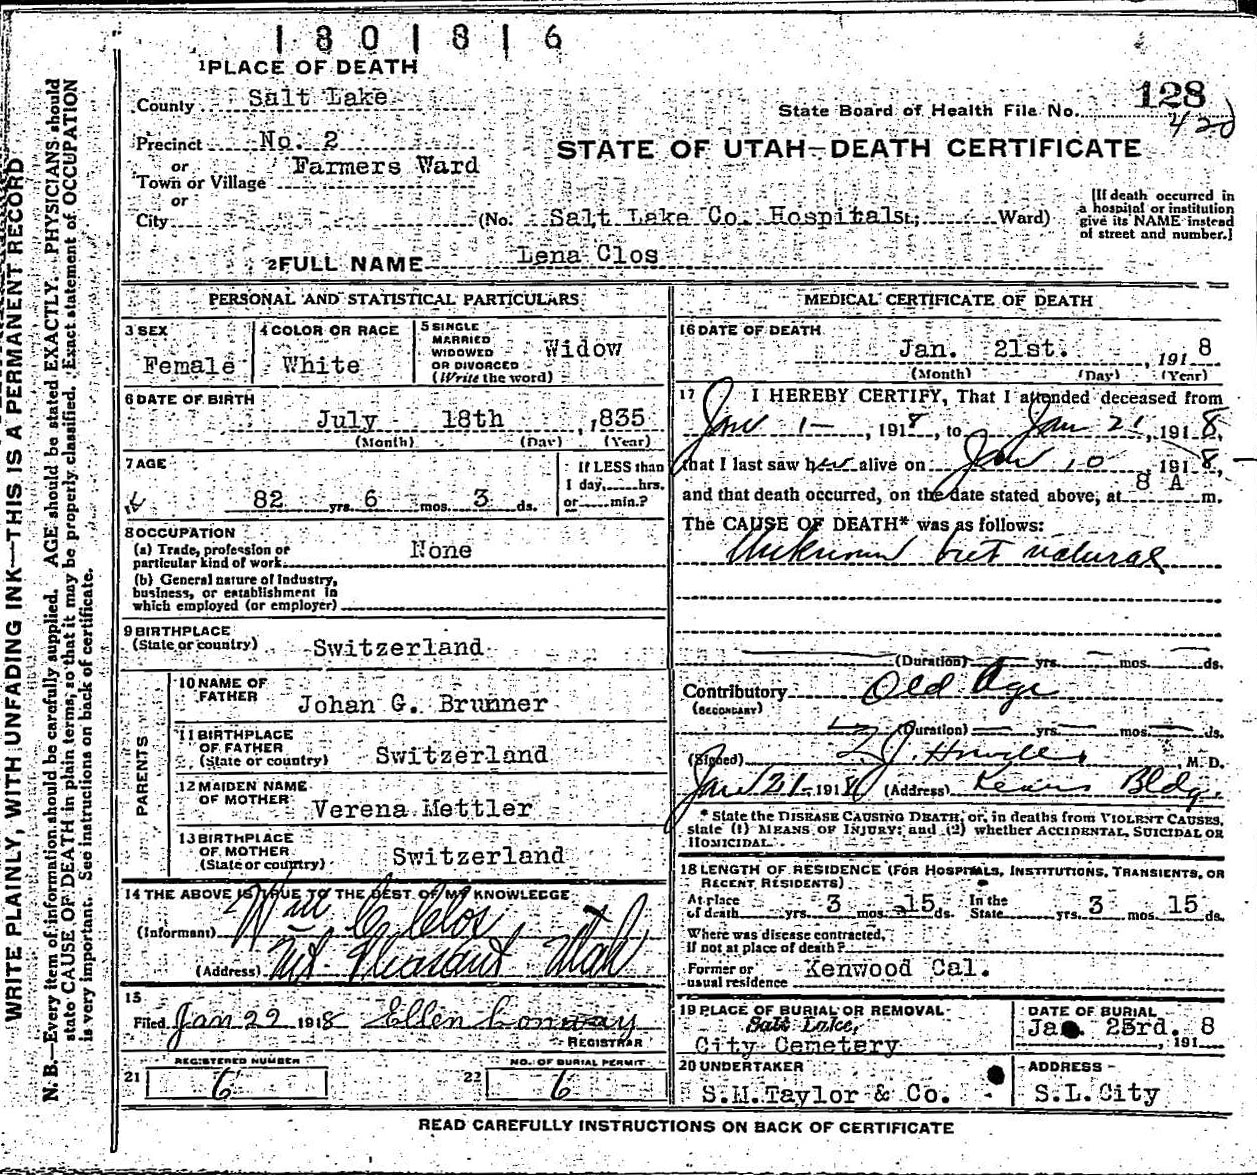 1801816
1 PLACE OF DEATH
County Salt Lake
State Board of Health File No. 128
420
Precinct No. 2
or
Town or Village Farmers Ward
or
STATE OF UTAH—DEATH CERTIFICATE
City (No. Salt Lake Co. Hospital St.; Ward)
[If death occurred in
a hospital or institution
give its NAME instead
of street and number.]
2 FULL NAME Lena Clos
PERSONAL AND STATISTICAL PARTICULARS
3 SEX
Female
4 COLOR OR RACE
White
5 SINGLE
MARRIED
WIDOWED
OR DIVORCED
(Write the word)
Widow
6 DATE OF BIRTH
July 18th , 1835
(Month) (Day) (Year)
7 AGE
82 yrs. 6 mos. 3 ds.
If LESS than
1 day, hrs.
or min.?
8 OCCUPATION
(a) Trade, profession or
particular kind of work None
(b) General nature of Industry,
business, or establishment in
which employed (or employer)
9 BIRTHPLACE
(State or country) Switzerland
PARENTS
10 NAME OF
FATHER Johan G. Brunner
11 BIRTHPLACE
OF FATHER
(State or country) Switzerland
12 MAIDEN NAME
OF MOTHER Verena Mettler
13 BIRTHPLACE
OF MOTHER
(State or country) Switzerland
14 THE ABOVE IS TRUE TO THE BEST OF MY KNOWLEDGE
(Informant) Wm C Clos
(Address) Mt. Pleasant Utah
15
Filed Jan 22 1918 Ellen Conway
REGISTRAR
REGISTERED NUMBER
21 6
NO. OF BURIAL PERMIT
22 6
MEDICAL CERTIFICATE OF DEATH
16 DATE OF DEATH
Jan. 21st. , 191 8
(Month) (Day) (Year)
17 I HEREBY CERTIFY, That I attended deceased from
Jan 1 - , 1918, to Jan 21, 1918,
that I last saw her alive on Jan 10 1918,
and that death occurred, on the date stated above, at 8 A m.
The CAUSE OF DEATH* was as follows:
Unknown but natural
(Duration) yrs. mos. ds.
Contributory Old Age
(SECONDARY)
(Duration) yrs. mos. ds.
(Signed) M. D.
Jan 21 - 1918 (Address) Kearns Bldg.
* State the DISEASE CAUSING DEATH, or, in deaths from VIOLENT CAUSES,
state (1) MEANS OF INJURY; and (2) whether ACCIDENTAL, SUICIDAL OR
HOMICIDAL.
18 LENGTH OF RESIDENCE (FOR HOSPITALS, INSTITUTIONS, TRANSIENTS, OR
RECENT RESIDENTS)
At place
of death yrs. 3 mos. 15 ds. In the
State yrs. 3 mos. 15 ds.
Where was disease contracted,
If not at place of death?
Former or
usual residence Kenwood Cal.
19 PLACE OF BURIAL OR REMOVAL
Salt Lake,
City Cemetery
DATE OF BURIAL
Jan. 23rd. 8
, 191
20 UNDERTAKER
S.M. Taylor & Co.
ADDRESS
S.L. City
READ CAREFULLY INSTRUCTIONS ON BACK OF CERTIFICATE
WRITE PLAINLY, WITH UNFADING INK—THIS IS A PERMANENT RECORD
N. B.—Every item of information should be carefully supplied. AGE should be stated EXACTLY. PHYSICIANS should
state CAUSE OF DEATH in plain terms, so that it may be properly classified. Exact statement of OCCUPATION
is very important. See instructions on back of certificate.